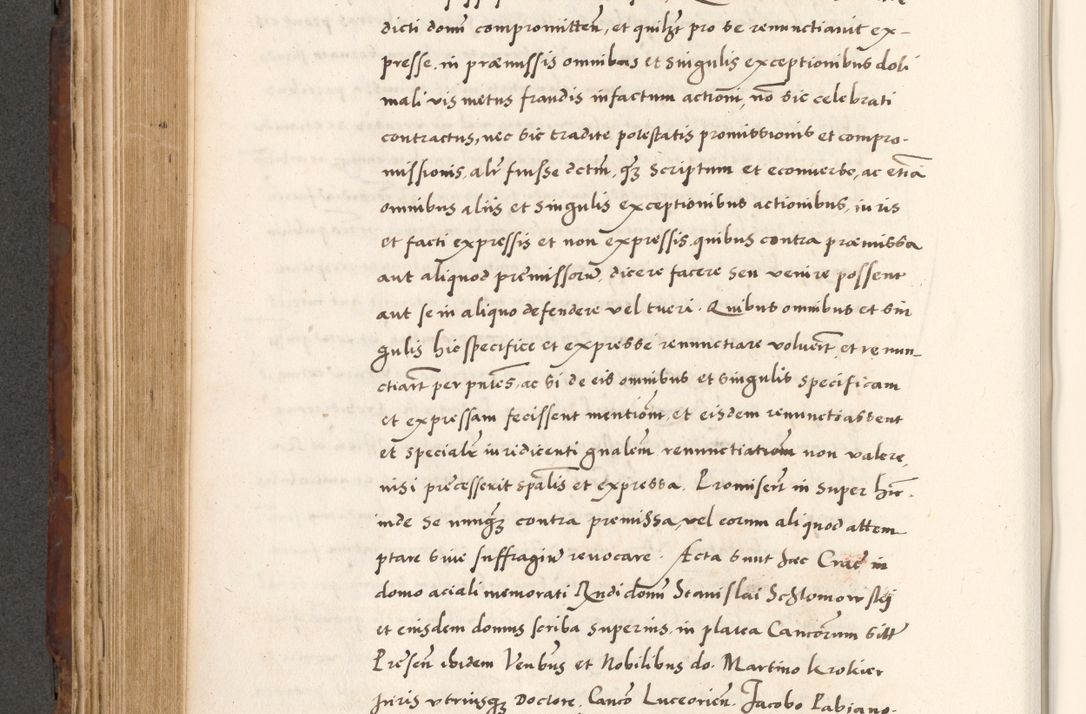 dicti domi compromitteñ, et quilz̃t pro se renunctiavit ex-
presse, in præmissis omnibus et singulis exceptionibus doli
mali vis metus fraudis infactum actioni, nõ sic celebrati
contractus, nec sic tradite potestatis promissionis et compro-
missionis, alr̃ fuisse dctm̃, qz̃ scriptum et econuerso, ac etiã
omnibus aliis et singulis exceptionibus actionibus, iuris
et facti expressis et non expressis, quibus contra præmissa
aut aliquod premissorũ, dicere facere seu venire possent
aut se in aliquo defendere vel tueri. Quibus omnibus et sin
gulis hic specifice et expresse renunctiare voluer̃t, et renun-
ctiar̃t per pñtes, ac si de eis omnibus et singulis specificam
et expressam fecissent mentiom̃, et eisdem renunctoassent
et specialẽ iuridicenti gñalem renunctiatiom̃ non valere,
nisi precesserit spãlis et expressa. Promiserũt in super hic̃.
inde se nunqz̃ contra premissa, vel eorum aliquod attem
ptare sive suffragiũ revocare. Acta sunt hæc Crac̃ in
domo aciali memorati Rndi domi Stanislai Schlomowskj
et eiusdem domus scriba superius, in platea Cancorum sitt̃
Preseñ ibidem Venbus et Nobilibus do. Martino Krokier
Juris vtriusqz Doctore, Canco Luceorieñ. Jacobo Fabiano-